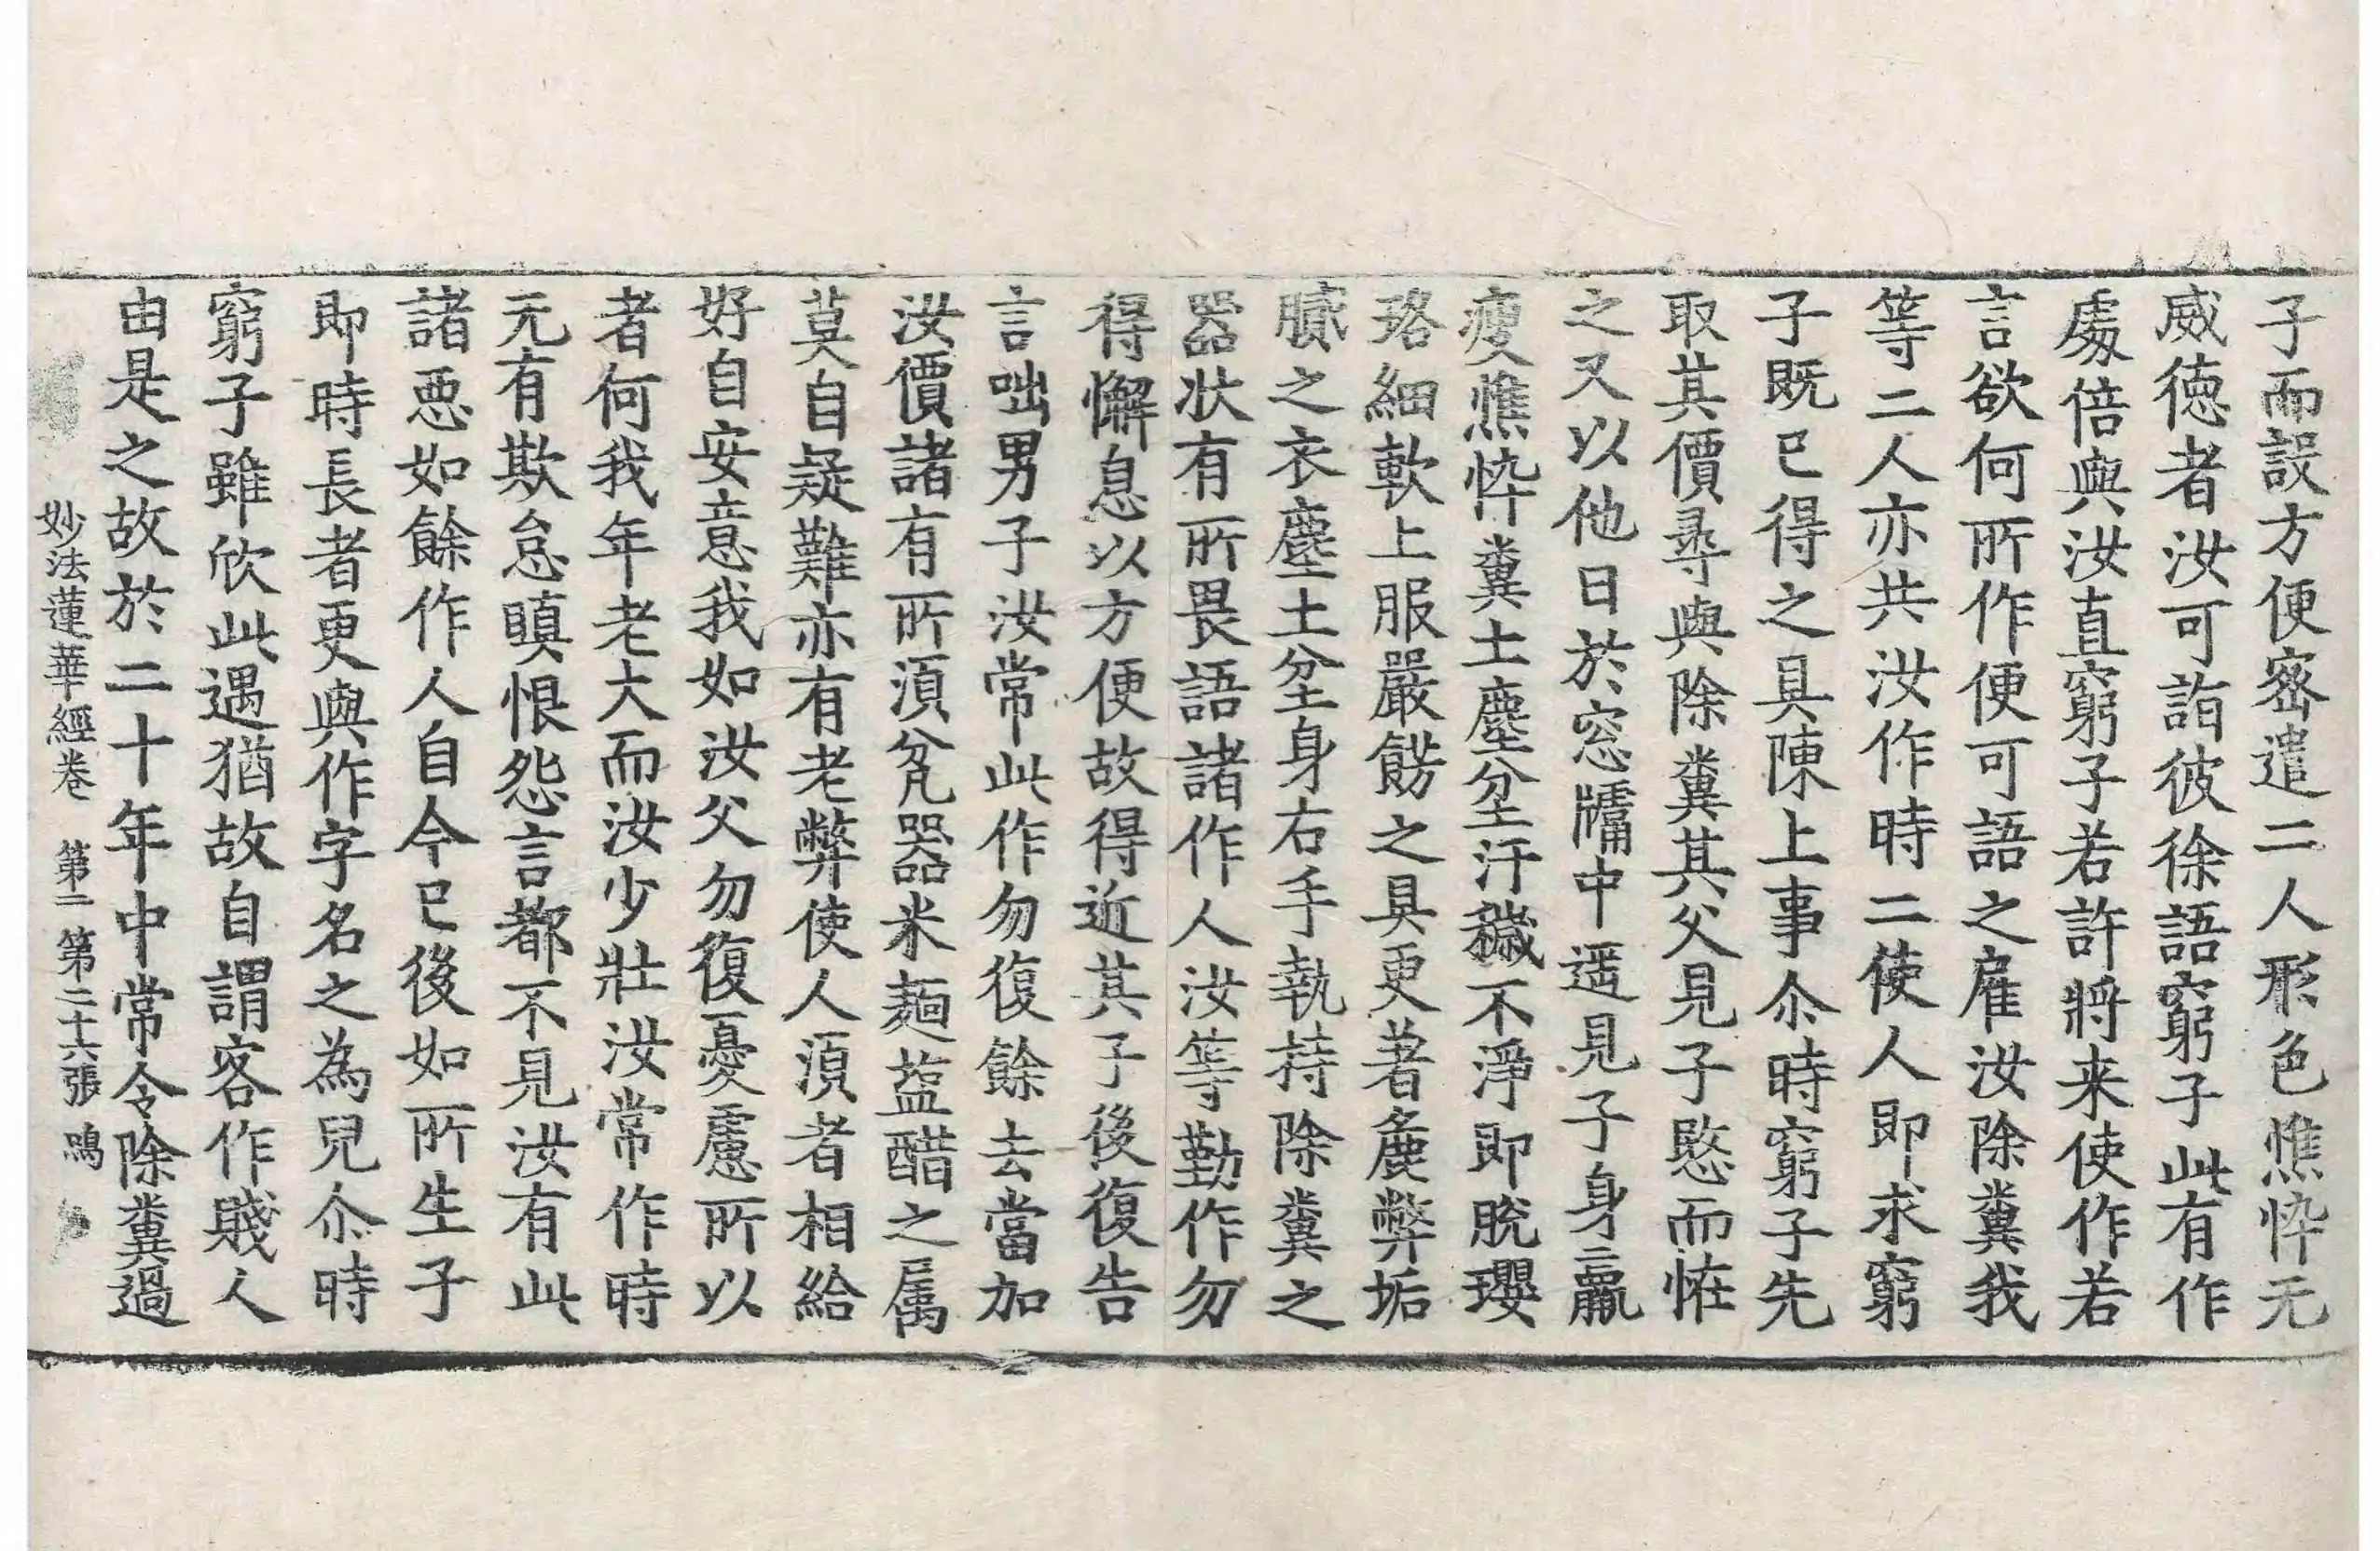 子而設方便密遣二人形色憔悴无
威徳者汝可詣彼徐語窮子此有作
處倍與汝直窮子若許將来使作若
言欲何所作便可語之雇汝除糞我
等二人亦共汝作時二使人即求窮
子既已得之具陳上事尒時窮子先
取其價尋與除糞其父見子愍而恠
之又以他日於窓牖中遥見子身羸
瘦憔悴糞土塵坌汙穢不淨即脫瓔
珞細軟上服嚴餝之具更著麁弊垢
膩之衣塵土坌身右手執持除糞之
器状有所畏語諸作人汝等勤作勿
得懈息以方便故得近其子後復告
言咄男子汝常此作勿復餘去當加
汝價諸有所須瓫器米麺塩醋之属
莫自疑難亦有老弊使人須者相給
好自安意我如汝父勿復憂慮所以
者何我年老大而汝少壯汝常作時
无有欺怠瞋恨怨言都不見汝有此
諸悪如餘作人自今已後如所生子
即時長者更與作字名之為兒尒時
窮子雖欣此遇猶故自謂客作賤人
由是之故於二十年中常令除糞過
妙法蓮華經卷 第二 第二十六張 鴻